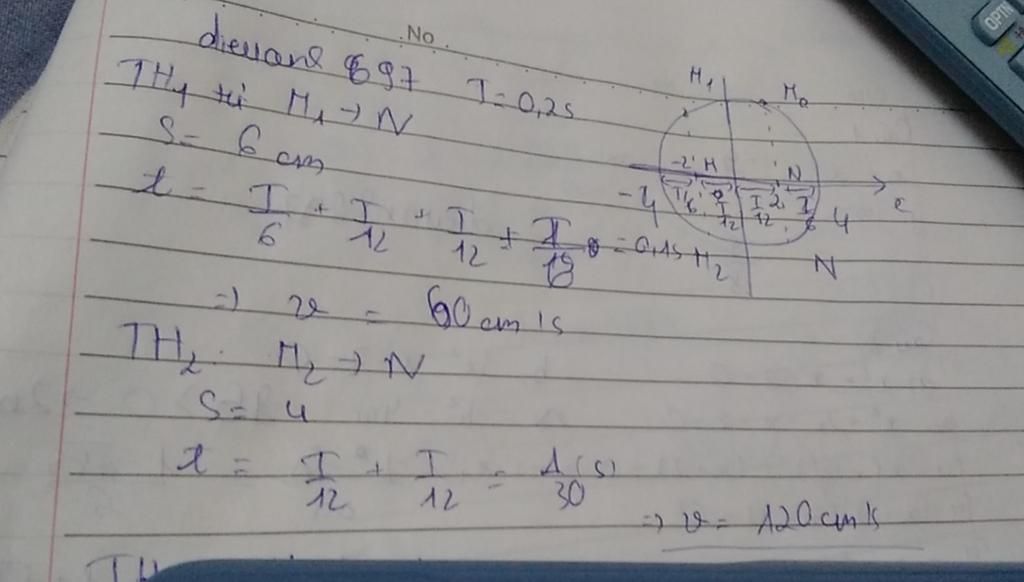 No
dieuane 697 T=0,2s
TH1 từ M1 → N
S= 6 cm
t = T/6 + T/12 + T/12 + = 0,1s
=> v = 60 cm/s
TH2. M2 → N
S= 4
t = T/12 + T/12 = 1/30 (s)
=> v = 120 cm/s
TH
M1 M0
-2 M N
-4 T/6 T/12 T/12 2 T/6 4
M2 N
OPTN